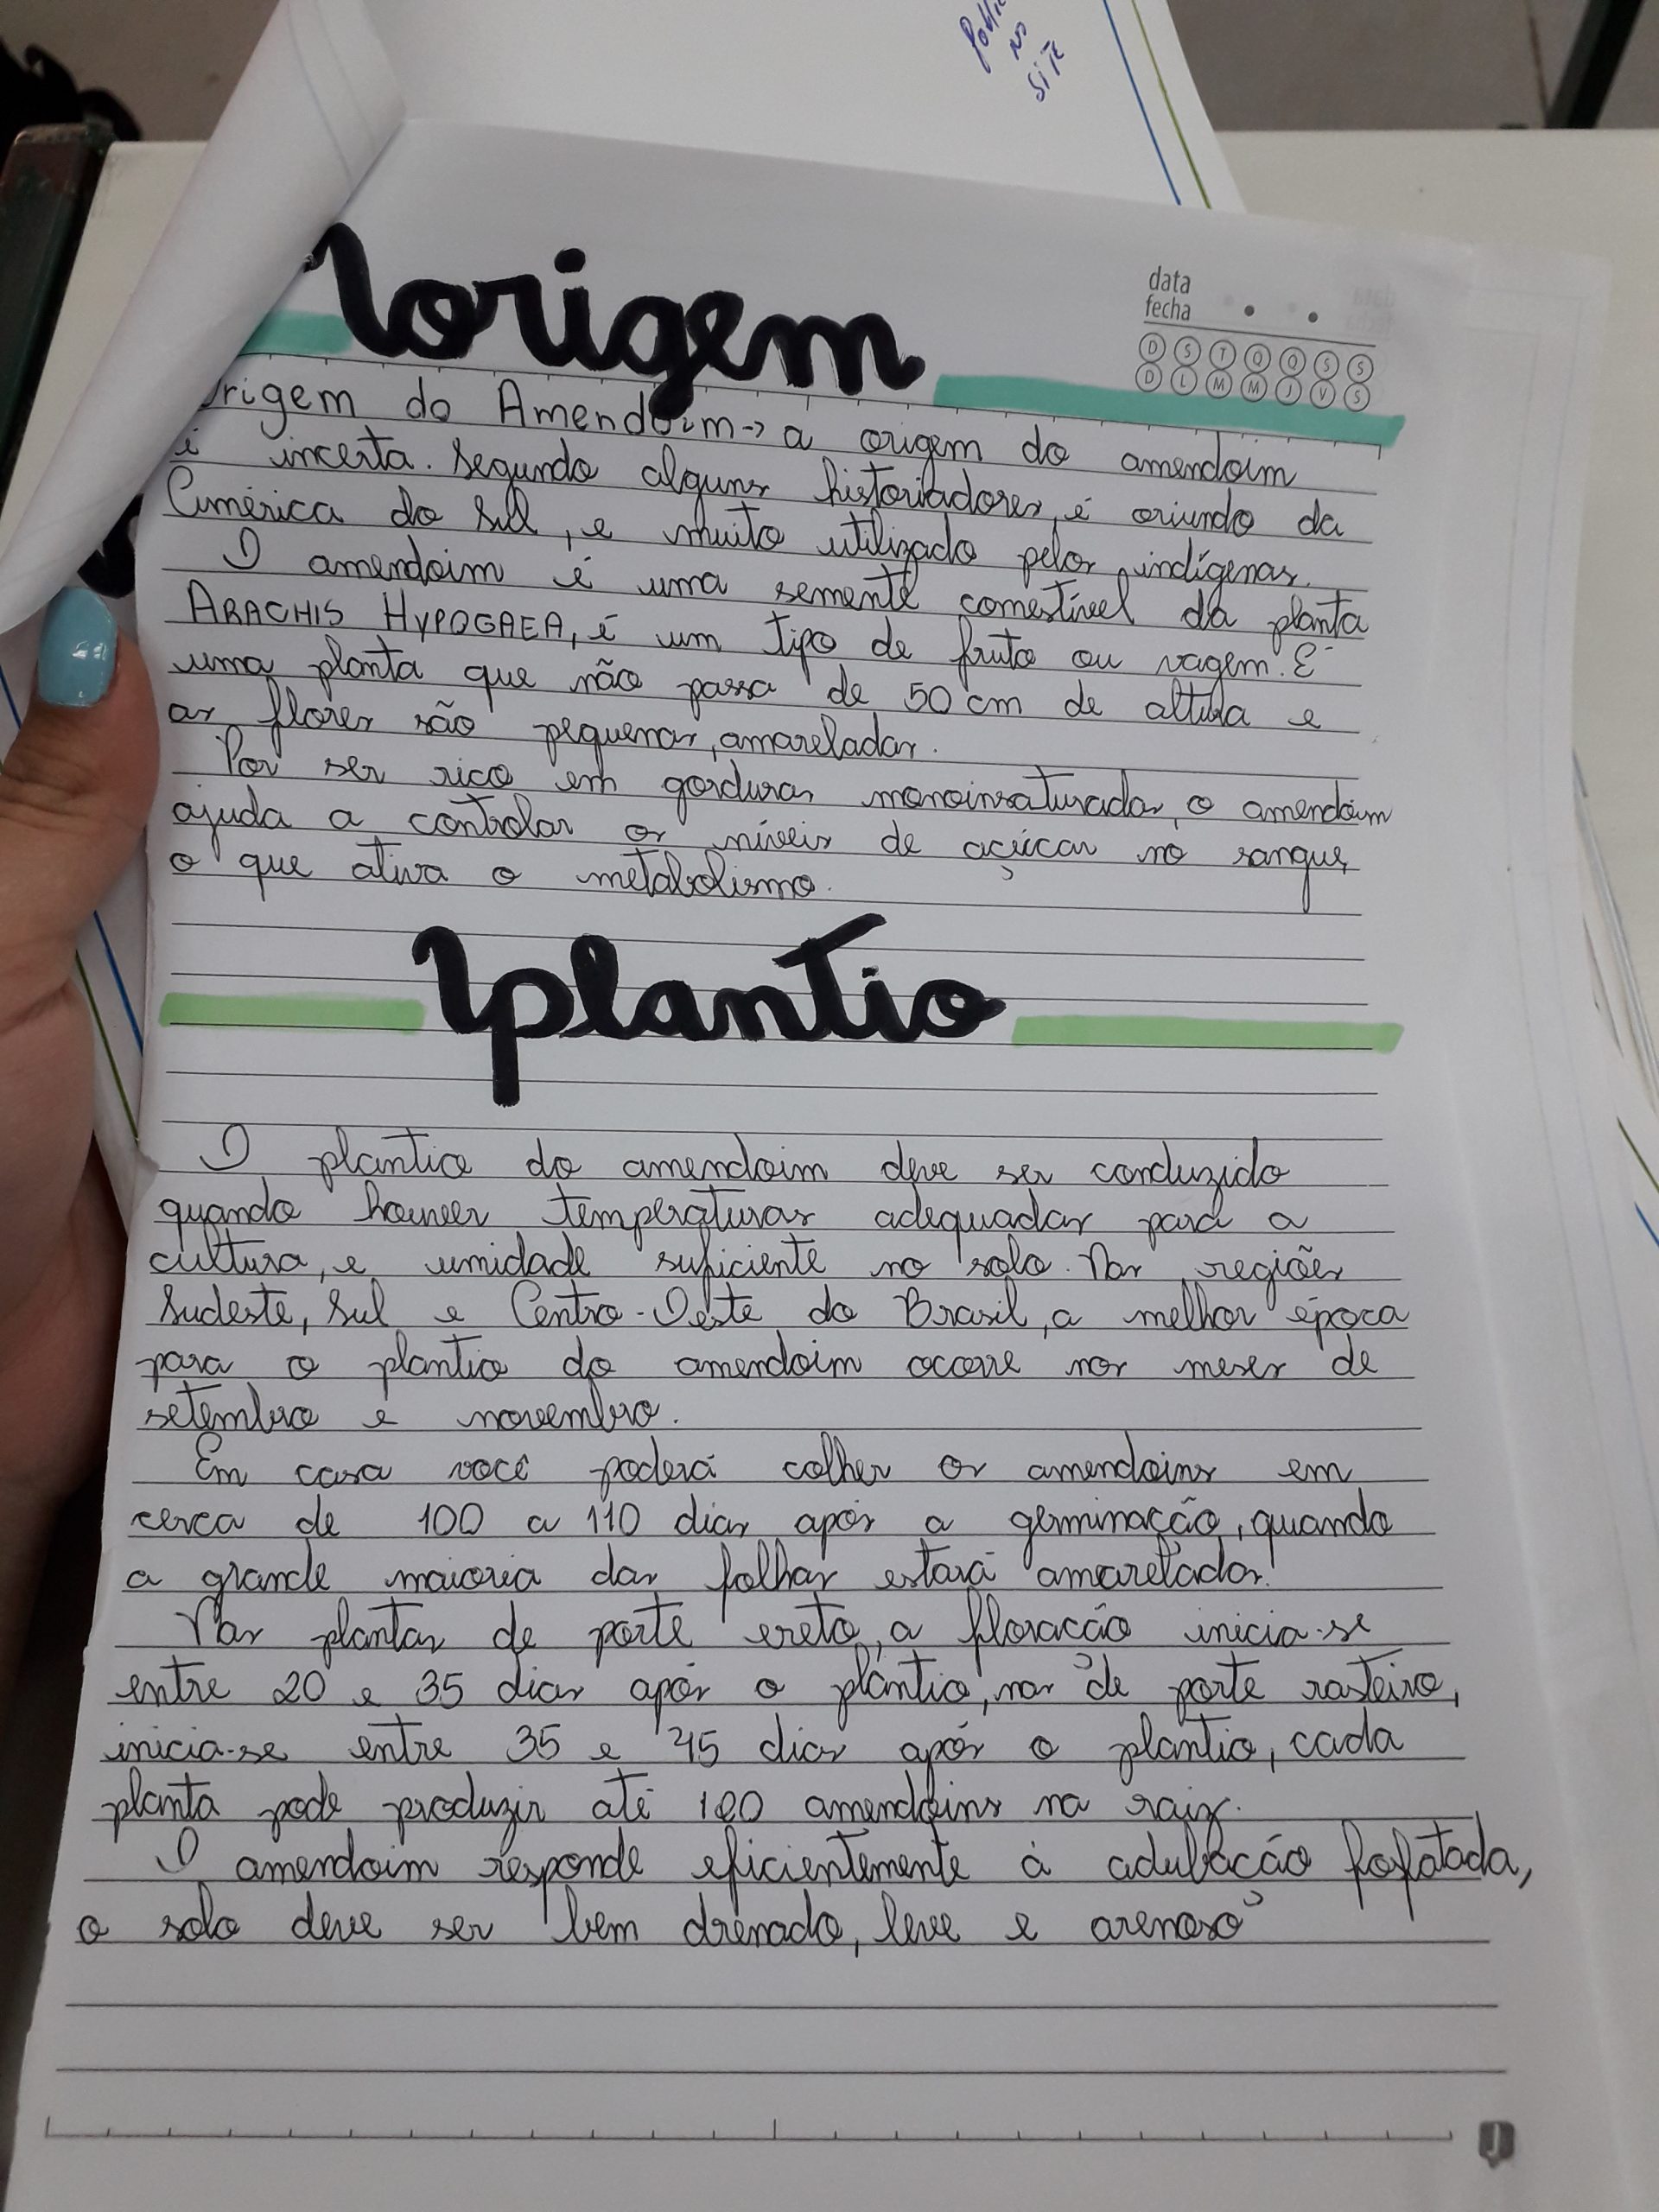 Públic
no
site
origem
data
fecha
D S T Q Q S S
D L M M J V S
Origem do Amendoim -> a origem do amendoim
é incerta. Segundo alguns historiadores, é oriundo da
América do Sul, e muito utilizado pelos indígenas.
O amendoim é uma semente comestível da planta
ARACHIS HYPOGAEA, é um tipo de fruto ou vagem. É
uma planta que não passa de 50 cm de altura e
as flores são pequenas, amareladas.
Por ser rico em gorduras monoinsaturadas, o amendoim
ajuda a controlar os níveis de açúcar no sangue,
o que ativa o metabolismo.
plantio
O plantio do amendoim deve ser conduzido
quando houver temperaturas adequadas para a
cultura, e umidade suficiente no solo. Nas regiões
Sudeste, Sul e Centro-Oeste do Brasil, a melhor época
para o plantio do amendoim ocorre nos meses de
setembro e novembro.
Em casa você poderá colher os amendoins em
cerca de 100 a 110 dias após a germinação, quando
a grande maioria das folhas estará amarelados.
Nas plantas de porte ereto, a floração inicia-se
entre 20 e 35 dias após o plantio, nas de porte rasteiro,
inicia-se entre 35 e 45 dias após o plantio, cada
planta pode produzir até 100 amendoins na raiz.
O amendoim responde eficientemente à adubação fosfatada,
o solo deve ser bem drenado, leve e arenoso